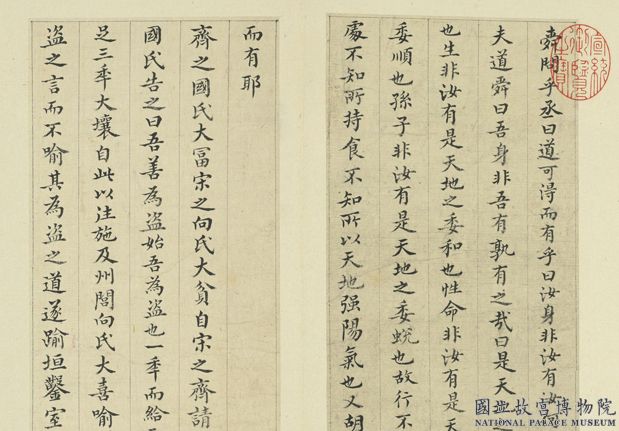 舜問乎丞曰道可淂而有乎曰汝身非汝有汝
夫道舜曰吾身非吾有孰有之哉曰是天
也生非汝有是天地之委和也性命非汝有是天
委順也孫子非汝有是天地之委蛻也故行不
處不知所持食不知所以天地强陽氣也又胡
而有耶
齊之國氏大冨宋之向氏大貧自宋之齊請
國氏告之曰吾善為盗始吾為盗也一秊而給
足三秊大壤自此以往施及州閭向氏大喜喻
盗之言而不喻其為盗之道遂踰垣鑿室
宣統御覽之寶
國立故宮博物院
NATIONAL PALACE MUSEUM